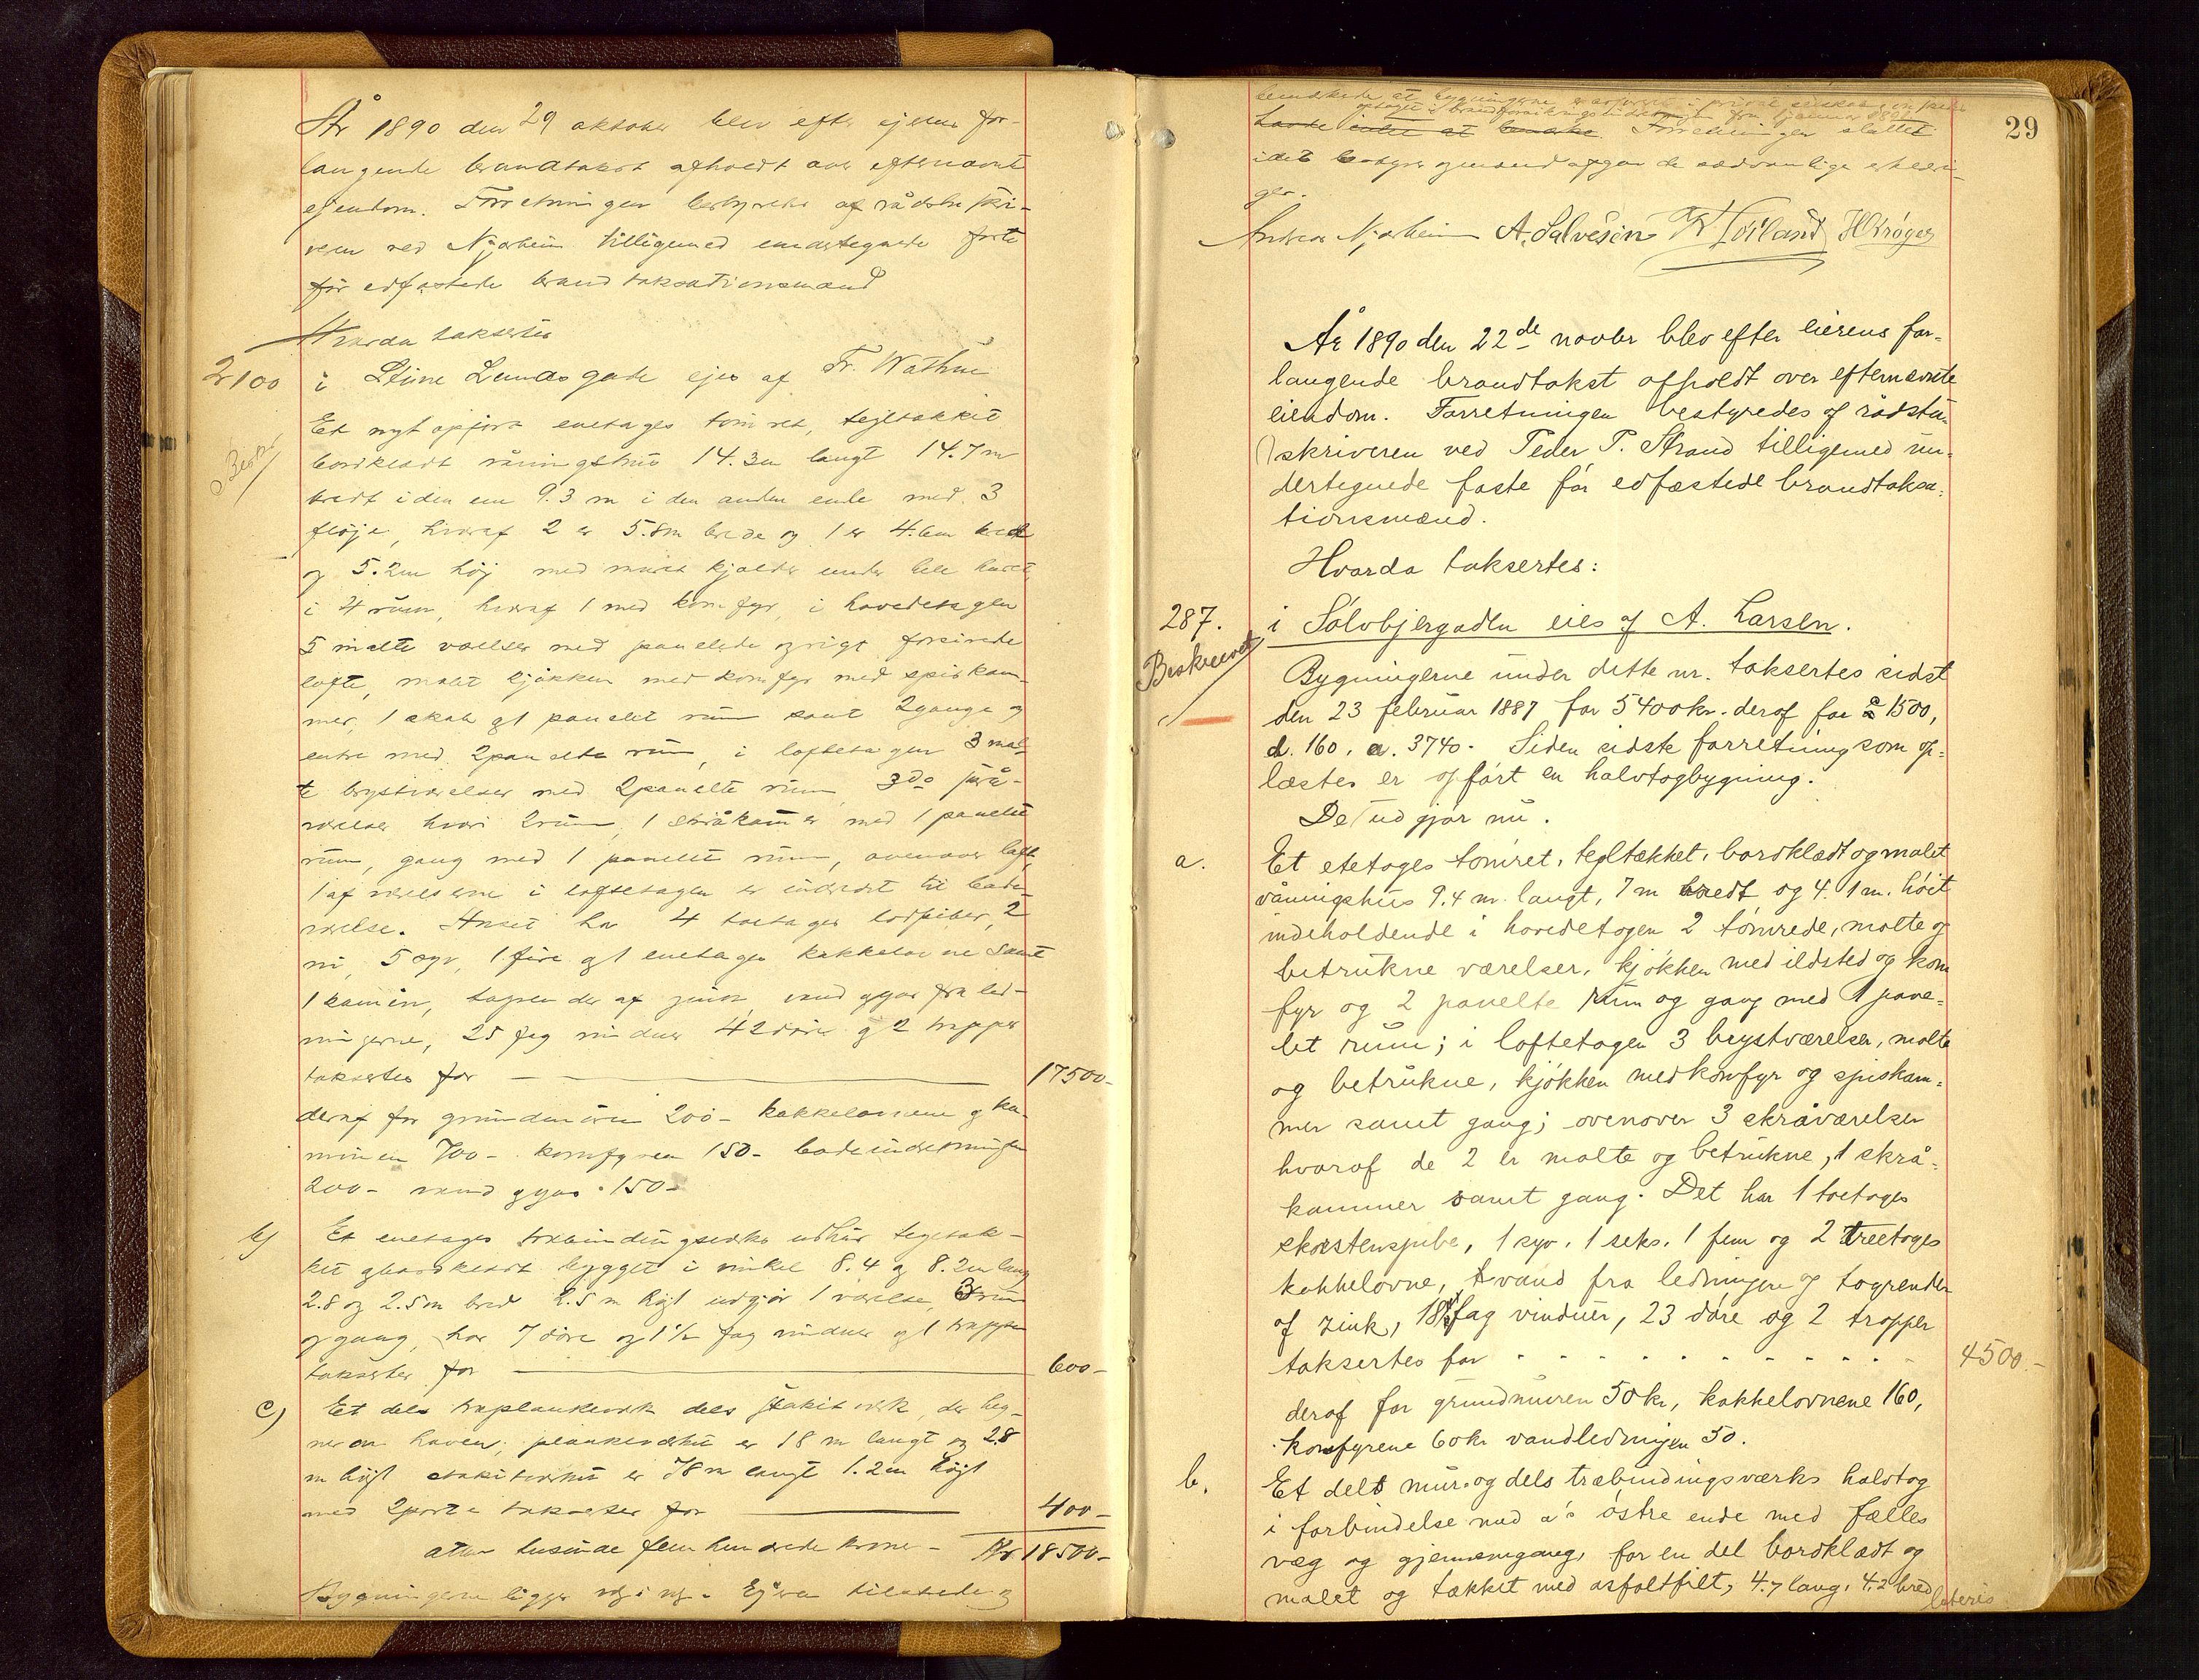 År 1890 den 29 oktober blev efter ejerens for-
langende brandtakst afholdt over efternævnte
ejendom. Forretningen bestyredes af rådstuskri-
veren ved Njærheim tilligemed undertegnede faste
for edfæstede brandtaksationsmænd
Hvorda taksertes
2100 i Stine Lunds gade ejes af Fr. Wathne
Beskr
Et nyt opført enetages tømret, tegltækket
bordklædt våningshus 14.3m langt 14.7m
bredt i den ene 9.3 m i den anden ende med 3
fløje, hvoraf 2 er 5.8m brede og 1 er 4.6m bred
og 5.2m høj med muret kjælder under hele huset
i 4 rum, hvoraf 1 med komfyr, i hovedetagen
5 malte værelser med panelede og rigt forsirede
lofte, malet kjøkken med komfyr med spiskam-
mer, 1 skab og 1 panelet rum samt 2 gange og
entre med 2 panelte rum, i loftetagen 3 mal-
te brystværelser med 2 panelte rum, 3 do skrå-
værelser hvori 2 rum, 1 skråkammer med 1 panelet
rum, gang med 1 panelet rum, ovenover loft,
1 af værelserne i loftetagen er indredet til bade-
værelse. Huset har 4 toetages rørpiber, 2
ni, 5 syv, 1 fire og 1 enetages kakkelovne samt
1 kamin, tagrender af zink, vand og gas fra led-
ningerne, 25 fag vinduer 42 døre og 2 trapper
taksertes for 17500-
deraf for grundmuren 200- kakkelovnene og ka-
minen 700- komfyren 150- badeindretningen
200- vand og gas 150-
b) Et enetages træbindingsværks udhus tegltæk-
ket og bordklædt bygget i vinkel 8.4 og 8.2m lang
2.8 og 2.5m bred 2.5 m højt udgjør 1 værelse, 3 rum
og gang, har 7 døre og 1½ fag vinduer og 1 trappe
taksertes for 600-
c) Et dels træplankeværk dels stakitværk, der heg-
ner om haven; plankeværket er 18 m langt og 2.8
m højt stakitværket er 78m langt 1.2m højt
med 2 porte taksertes for 400-
atten tusinde fem hundrede kroner - Kr 18500-
Bygningerne ligger Ejeren tilstede og
29
bemærkede at bygningerne
optaget i brandforsikringsindretningen fra 1 januar 1891
havde intet at bemærke. Forretningen sluttet
idet bestyrer og mænd afgav de sædvanlige erklærin-
ger.
Andreas Njærheim A. Salvesen H Krøger
År 1890 den 22de novbr blev efter eierens for-
langende brandtakst afholdt over efternævnte
eiendom. Forretningen bestyredes af rådstu-
skriveren ved Peder P. Strand tilligemed un-
dertegnede faste før edfæstede brandtaksa-
tionsmænd.
Hvorda taksertes:
287. i Sølvbjergaden eies af A. Larsen.
Beskrevet
Bygningerne under dette nr. taksertes sidst
den 23 februar 1887 for 5400 kr. deraf for 1500,
d. 160, a. 3740. Siden sidste forretning som op-
læstes er opført en halvtagbygning.
Det udgjør nu.
a. Et etetages tømret, tegltækket, bordklædt og malet
våningshus 9.4 m. langt, 7 m bredt og 4.1 m. høit
indeholdende i hovedetagen 2 tømrede, malte og
betrukne værelser, kjøkken med ildsted og kom
fyr og 2 panelte rum og gang med 1 pane-
let rum; i loftetagen 3 brystværelser, malte
og betrukne, kjøkken med komfyr og spiskam-
mer samt gang; ovenover 3 skråværelser
hvoraf de 2 er malte og betrukne, 1 skrå-
kammer samt gang. Det har 1 toetages
skorstenspibe, 1 syv. 1 seks. 1 fem og 2 treetages
kakkelovne, vand fra ledningen og tagrender
af zink, 18½ fag vinduer, 23 døre og 2 trapper
taksertes for - - - 4500.-
deraf for grundmuren 50 kr, kakkelovnene 160,
komfyrene 60 kr vandledningen 50.
b. Et dels mur- og dels træbindingsværks halvtag
i forbindelse med a's østre ende med fælles
væg og gjennemgang, for en del bordklædt og
malet og tækket med asfaltfilt, 4.7 lang, 4.2 bred
lateris